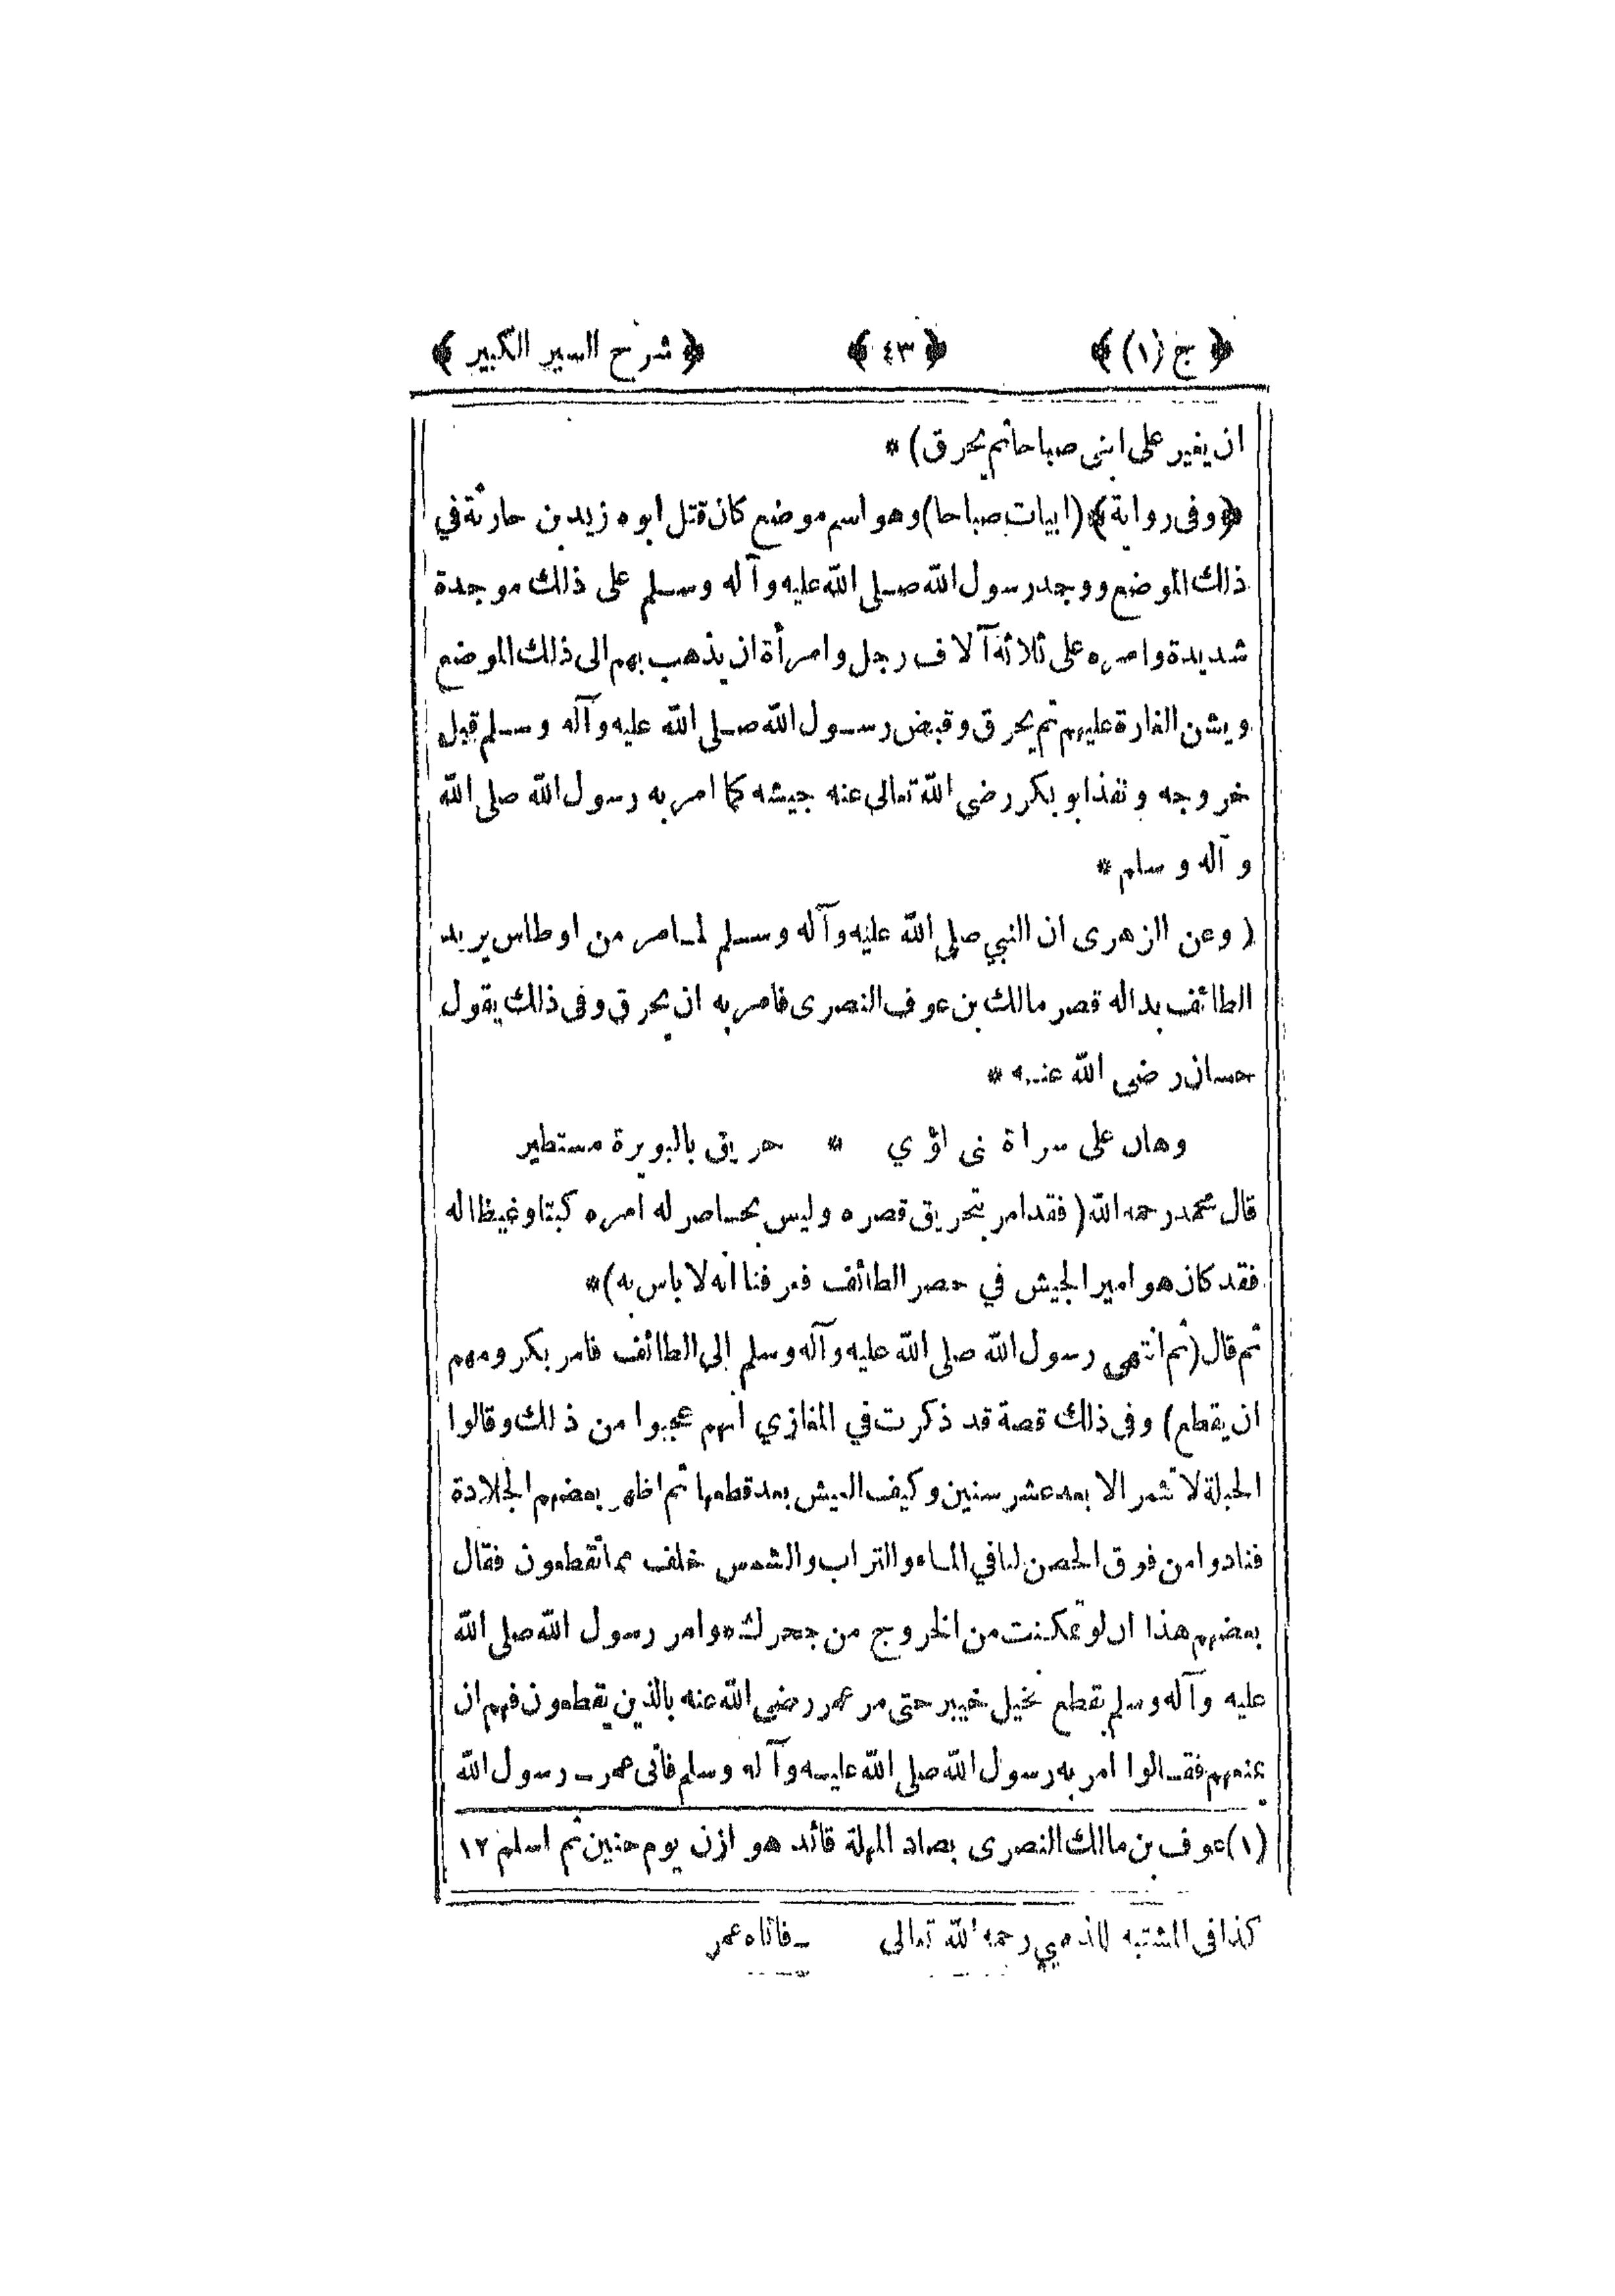 ﴿ ج (١) ﴾ ﴿ ٤٣ ﴾ ﴿ شرح السير الكبير ﴾
ان يغير على ابنى صباحا ثم يحرق ) *
﴿ وفى رواية ﴾ ( ابيات صباحا ) وهو اسم موضع كان قتل ابوه زيد بن حارثة في
ذلك الموضع ووجد رسول الله صلى الله عليه وآله وسلم على ذلك موجدة
شديدة وامره على ثلاثة آلاف رجل وامرأة ان يذهب بهم الى ذلك الموضع
ويشن الغارة عليهم ثم يحرق وقبض رسول الله صلى الله عليه وآله وسلم قبل
خروجه ونفذ ابو بكر رضى الله تعالى عنه جيشه كما امر به رسول الله صلى الله
وآله وسلم *
( وعن الزهرى ان النبي صلى الله عليه وآله وسلم لما مر من اوطاس يريد
الطائف بدا له قصر مالك بن عوف النصرى فامر به ان يحرق وفى ذلك يقول
حسان رضى الله عنه *
وهان على سراة نى لؤي * حريق بالبويرة مستطير
قال محمد رحمه الله ( فقد امر بتحريق قصره وليس بحاصر له امره كبتا وغيظا له
فقد كان هو امير الجيش في حصر الطائف فعرفنا انه لا باس به ) *
ثم قال ( ثم انتهى رسول الله صلى الله عليه وآله وسلم الى الطائف فامر بكرومهم
ان يقطع ) وفى ذلك قصة قد ذكرت في المغازي انهم عجبوا من ذلك وقالوا
الحبلة لا تثمر الا بعد عشر سنين وكيف العيش بعد قطعها ثم اظهر بعضهم الجلادة
فنادوا من فوق الحصن لنا في الماء والتراب والشمس خلف مما تقطعون فقال
بعضهم هذا ان لو تمكنت من الخروج من جحرك وامر رسول الله صلى الله
عليه وآله وسلم بقطع نخيل خيبر حتى مر عمر رضى الله عنه بالذين يقطعون فهم ان
يمنعهم فقالوا امر به رسول الله صلى الله عليه وآله وسلم فأتى عمر ــ رسول الله
(١) عوف بن مالك النصرى بصاد المهملة قائد هوازن يوم حنين ثم اسلم ١٢
كذا فى المشتبه للذهبي رحمه الله تعالى ــ فاتاه عمر